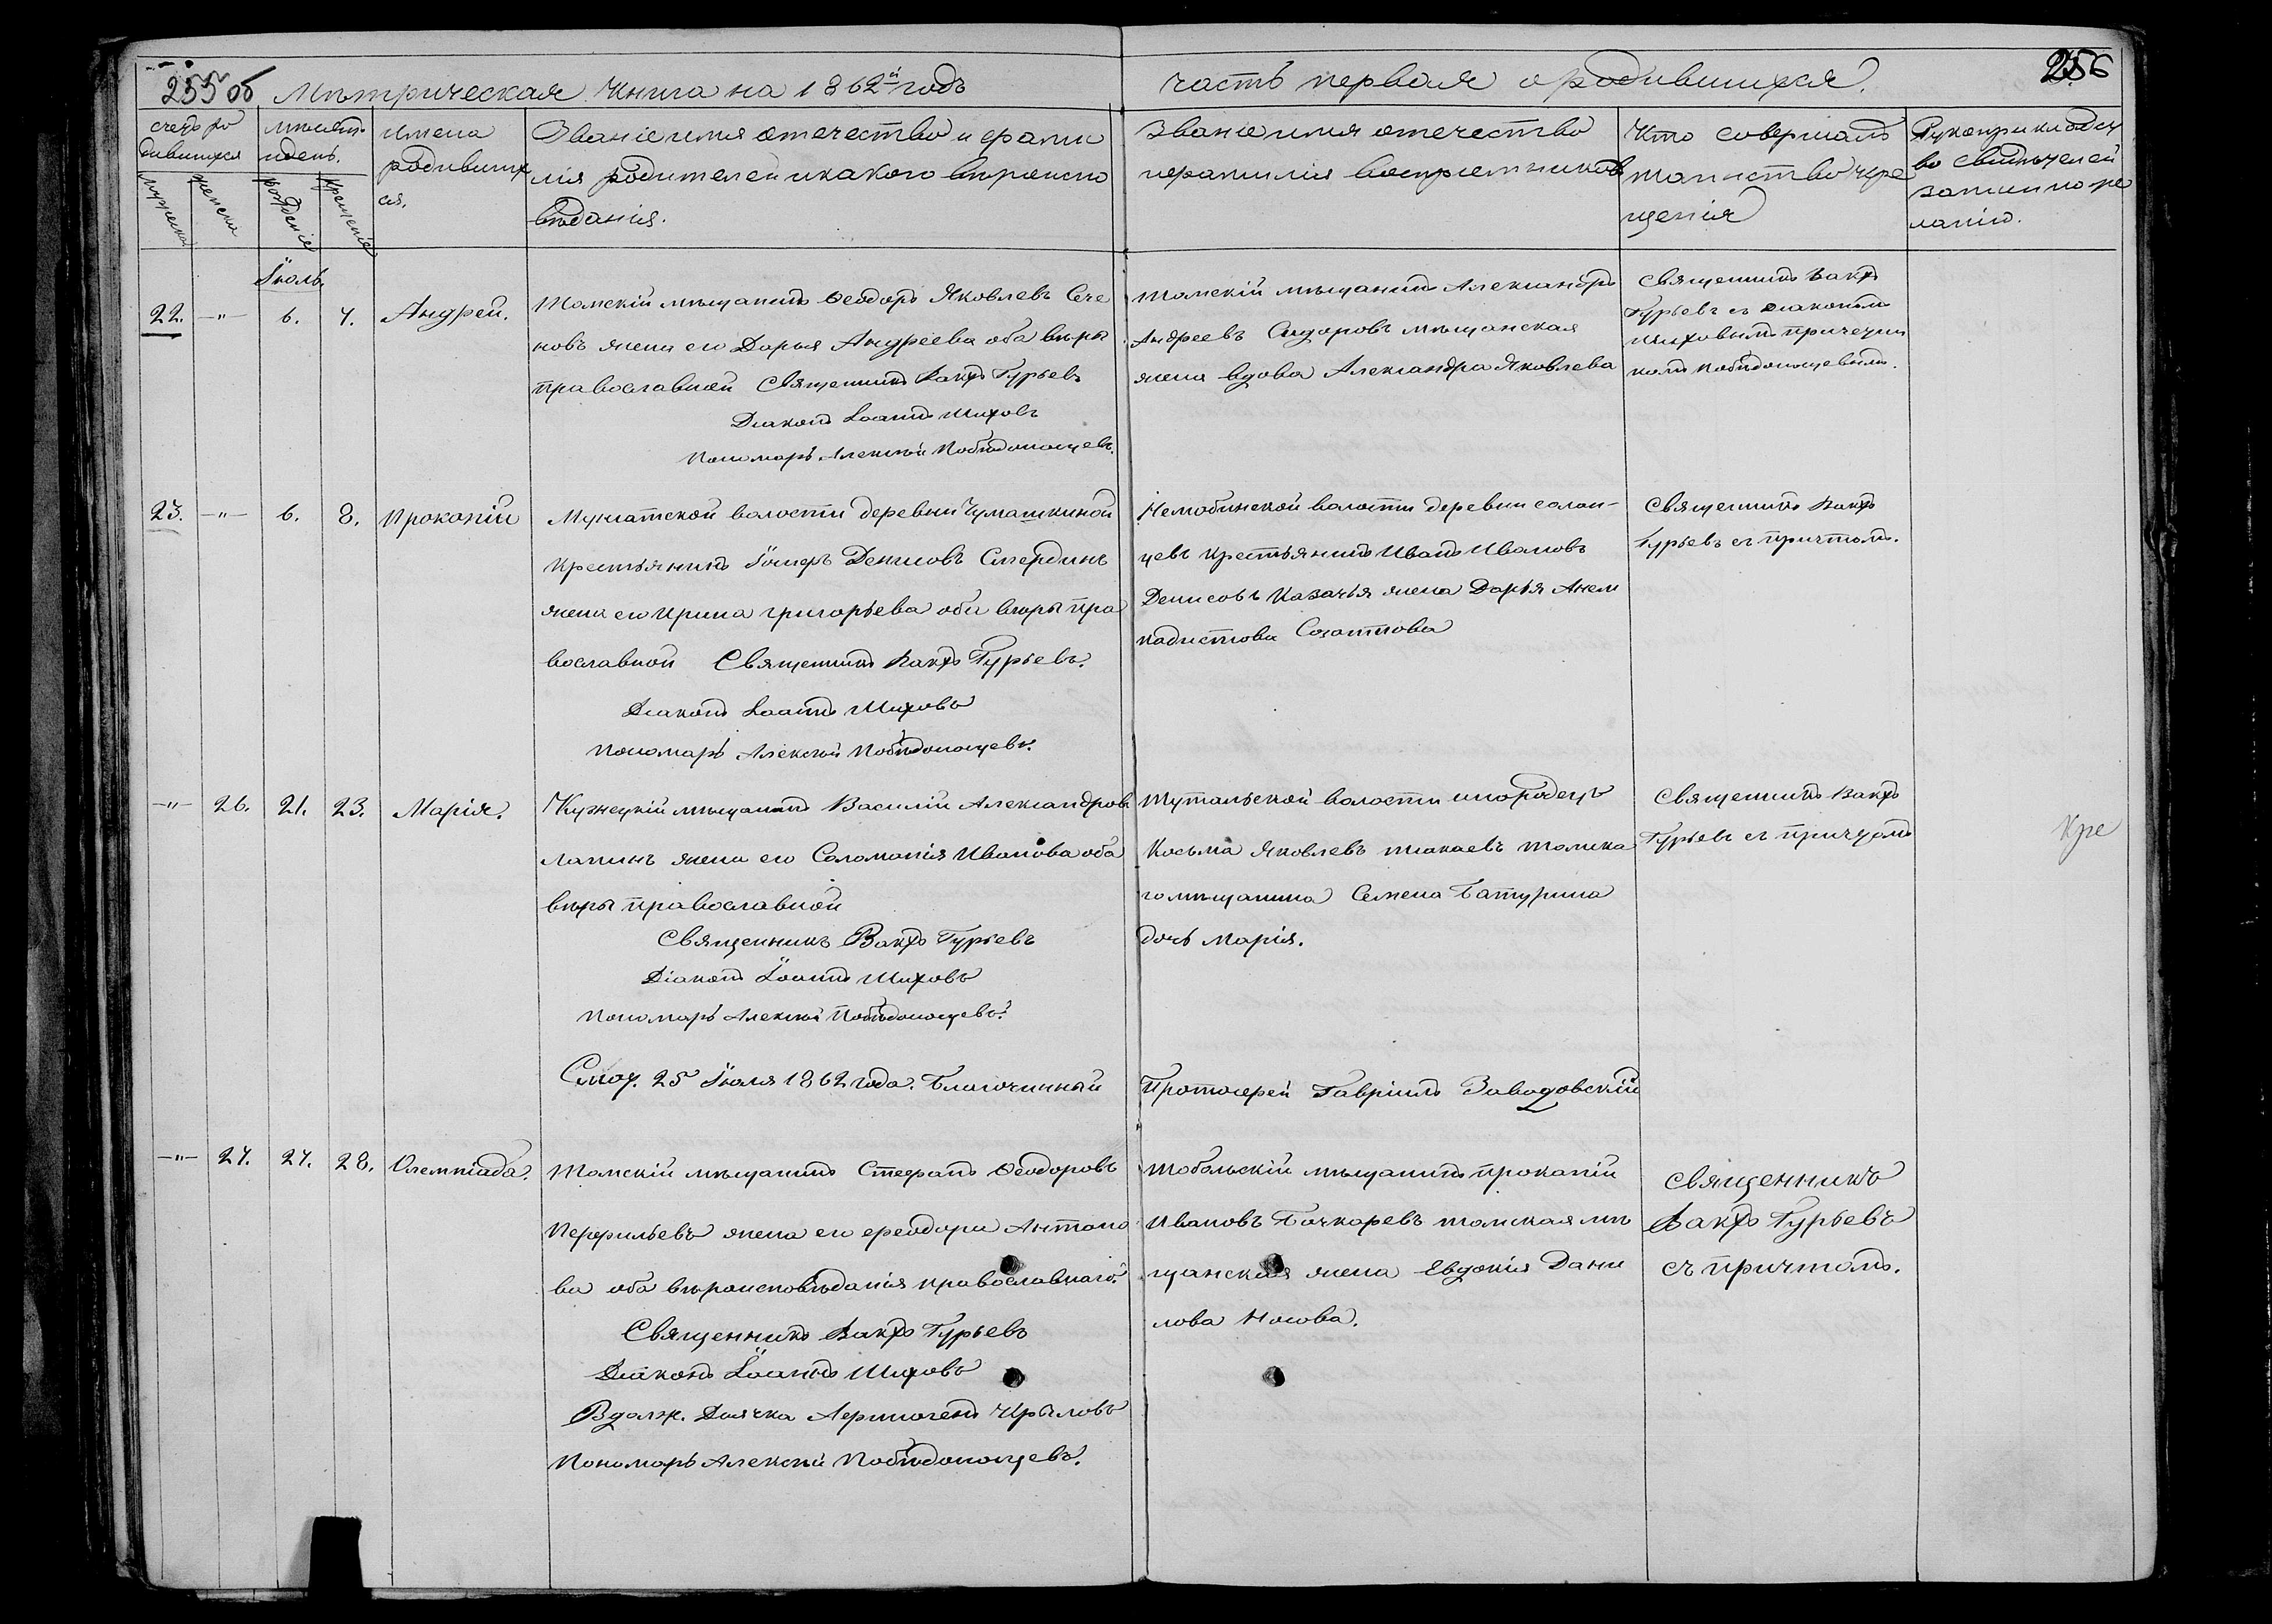 255 об Метрическая Книга на 1862й годъ
часть первая о родившихся.
256
счетъ ро
дившихся
мужеска
женска
месяцъ
и день.
рожденіе
крещеніе
имена
родивших
ся.
Званіе имя отечество и фами
лія родителей и какого вѣроиспо
вѣданія.
Званіе имя отечество
и фамилія воспріемниковъ
Кто совершалъ
таинство кре
щенія
Рукоприкладст
во свидѣтелей
записи по же
ланію.
Іюль
22.
—"—
6.
7.
Андрей.
Томскій мѣщанинъ Ѳеодоръ Яковлевъ Сече
новъ жена его Дарья Андреева оба вѣры
православной Священникъ Вакхъ Гурьевъ
Діаконъ Іоаннъ Шиховъ
Пономарь Алексѣй Побѣдоносцевъ.
Томскій мѣщанинъ Александръ
Андреевъ Сидоровъ мѣщанская
жена вдова Александра Яковлева
Священникъ Вакхъ
Гурьевъ съ діакономъ
Шиховымъ причетни
комъ Побѣдоносцевымъ.
23.
—"—
6.
8.
Прокопій
Мунгатской волости деревни Чумашкиной
крестьянинъ Іосифъ Денисовъ Смердинъ
жена его Ирина Григорьева оба вѣры пра
вославной Священникъ Вакхъ Гурьевъ.
Діаконъ Іоаннъ Шиховъ
Пономарь Алексѣй Побѣдоносцевъ.
Нелюбинской волости деревни солон-
цевъ крестьянинъ Иванъ Ивановъ
Денисовъ Казачья жена Дарья Анем
подистова Созоттова
Священникъ Вакхъ
Гурьевъ съ причтомъ.
—"—
26.
21.
23.
Марія.
Кузнецкій мѣщанинъ Василій Александров
Лапинъ жена его Соломонія Иванова оба
вѣры православной
Священникъ Вакхъ Гурьевъ
Діаконъ Іоаннъ Шиховъ
Пономарь Алексѣй Побѣдоносцевъ.
Тутальской волости инородецъ
Косьма Яковлевъ Токаевъ томска
го мѣщанина Семена Батурина
дочь Марія.
Священникъ Вакхъ
Гурьевъ съ причтомъ
Кре
Смот. 25 Іюля 1862 года. Благочинный
Протоіерей Гавріилъ Заводовскій
—"—
27.
27.
28.
Олемпіада.
Томскій мѣщанинъ Стефанъ Ѳеодоровъ
Перфильевъ жена его Ѳеодора Антоно
ва оба вѣроисповѣданія православнаго.
Священникъ Вакхъ Гурьевъ
Діаконъ Іоаннъ Шиховъ
В долж. Дьячка Крыловъ
Пономарь Алексѣй Побѣдоносцевъ.
Тобольскій мѣщанинъ прокапій
Ивановъ Бочкаревъ томская мѣ
щанская жена Евдокія Дани
лова Носова.
Священникъ
Вакхъ Гурьевъ
съ причтомъ.